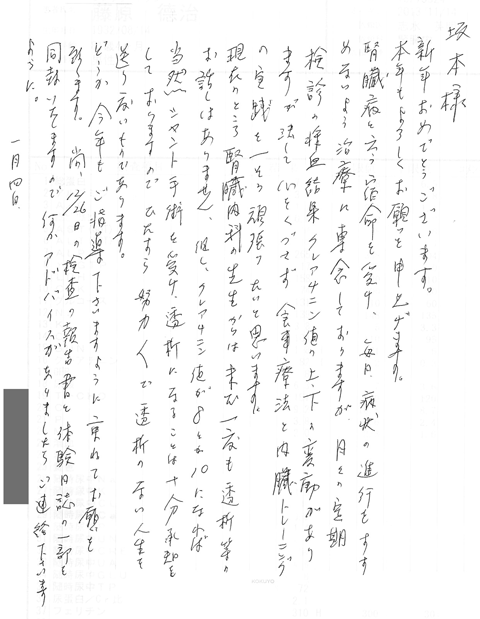 坂本様
新年おめでとうございます。
本年もよろしくお願い申し上げます。
腎臓病と云う宿命を受け、毎日病状の進行をすす
めないよう治療に専念しておりますが、月々の定期
検診の採血結果クレアチニン値の上、下の変動があり
ますが決して心をくづさず食事療法と内臓トレーニング
の実践を一そう頑張りたいと思います。
現在のところ腎臓内科の先生からは未だ一度も透析等の
お話しはありません、但し、クレアチニン値が8とか10になれば
当然シャント手術を受け、透析になることは十分承知を
しておりますのでひたすら努力して透析のない人生を
送りたいものであります。
どうか今年もご指導下さいますように重ねてお願いを
致します。尚、12/26日の検査の報告書と体験日誌の一部を
同封いたしますので何かアドバイスがありましたらご連絡下さいます
ように。
一月四日